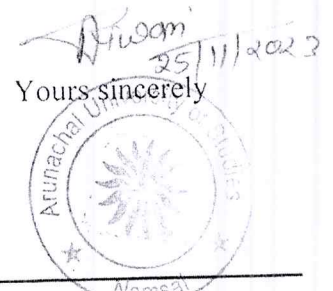 25/11/2023
Yours sincerely
Arunachal University of Studies
Namsai